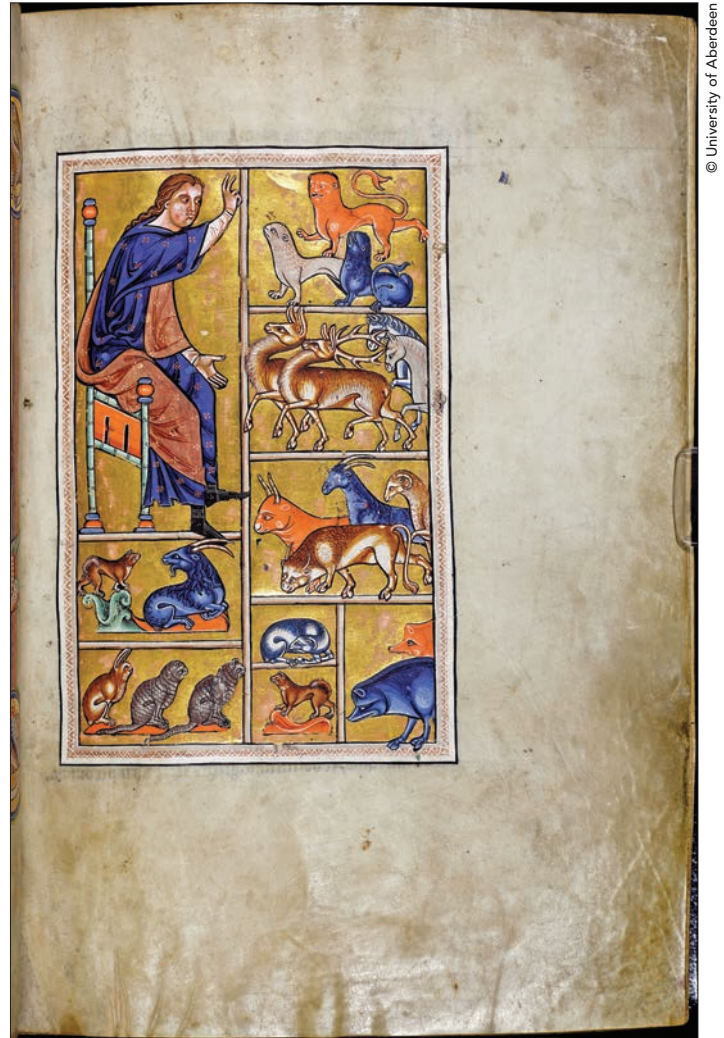 © University of Aberdeen